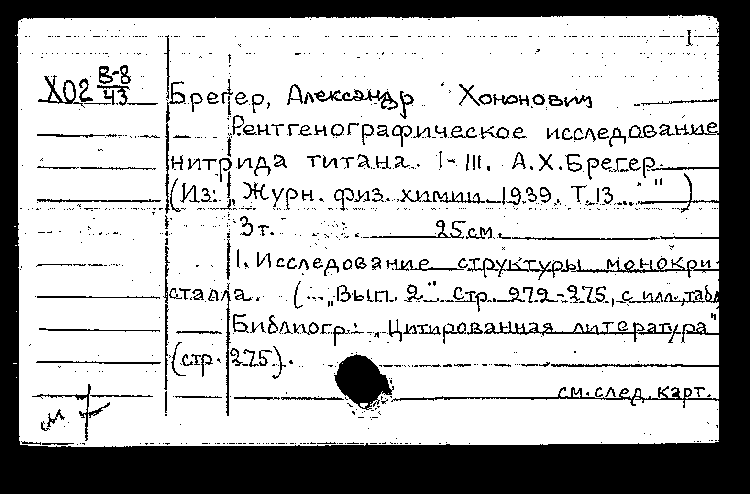 I
Х02 В-8
43
Брегер, Александр Хононович
Рентгенографическое исследование
нитрида титана. I-III. А.Х.Брегер.
(Из: „Журн. физ. химии. 1939. Т.13...")
3 т. 25 см.
1. Исследование структуры монокри-
сталла. (... „Вып. 2." Стр. 272-275, с илл., табл
Библиогр.: „Цитированная литература"
(стр. 275).
см. след. карт.